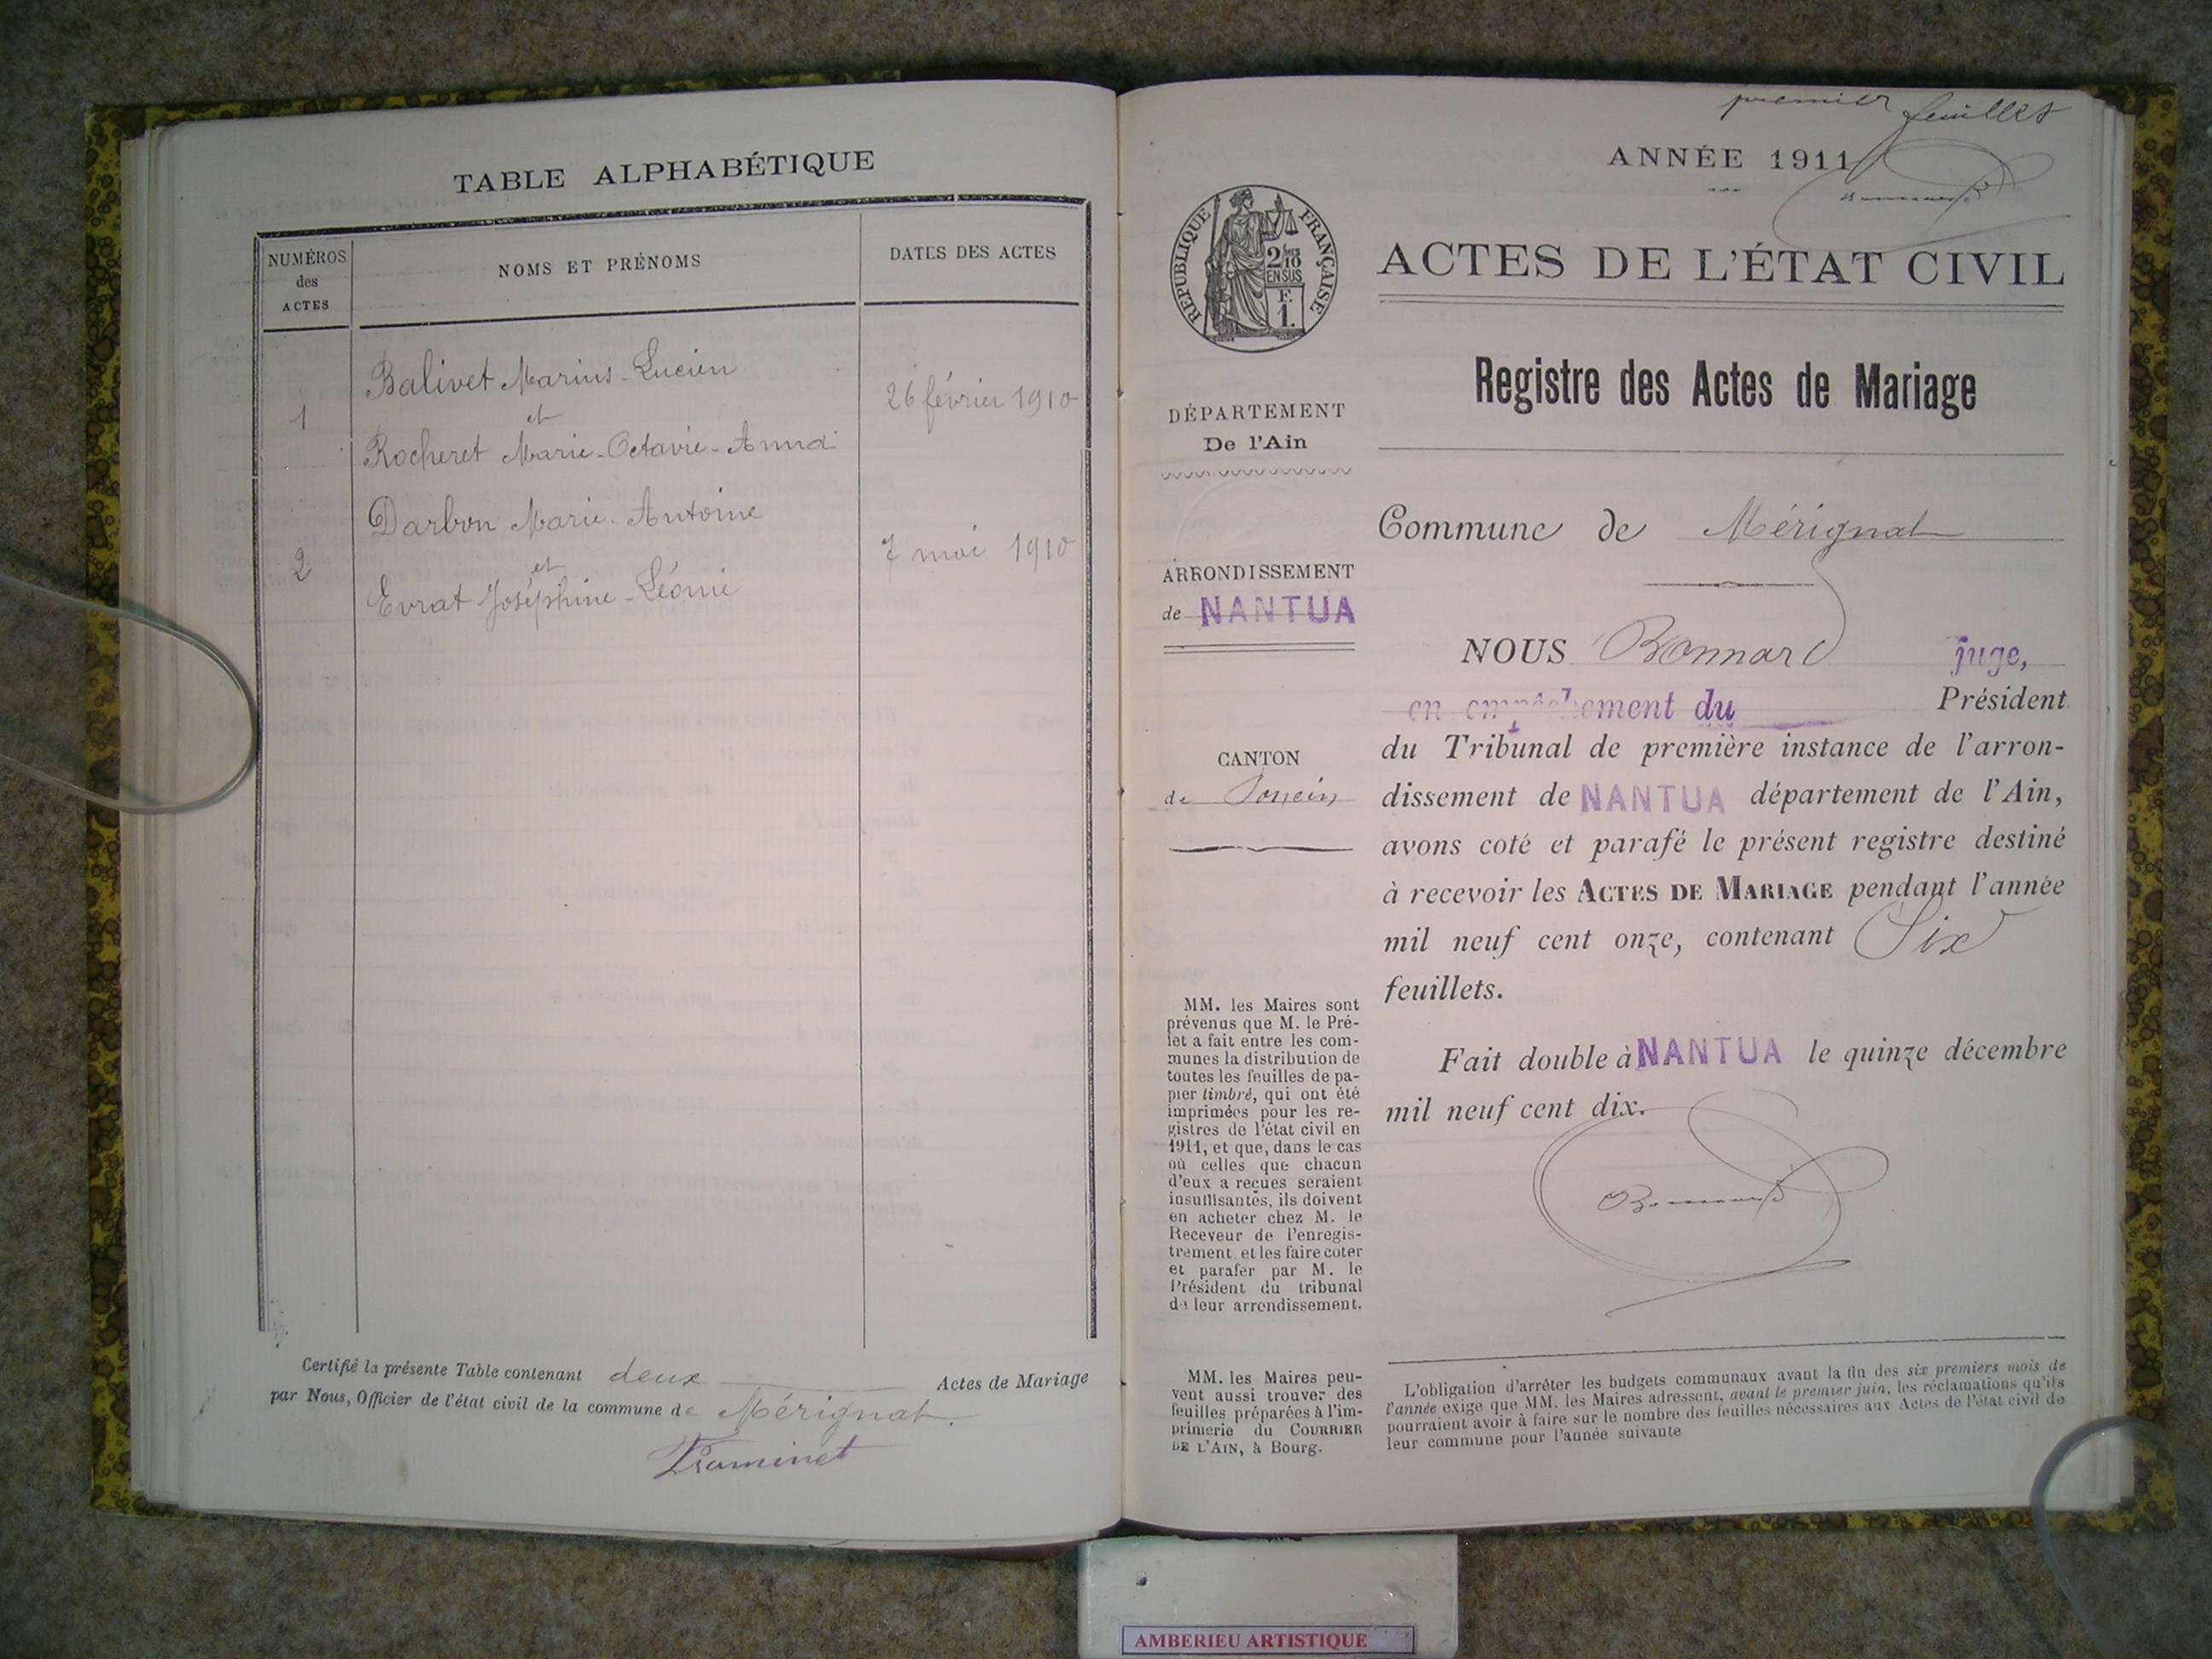 TABLE ALPHABÉTIQUE
NUMÉROS
des
ACTES
NOMS ET PRÉNOMS
DATES DES ACTES
Balivet Marius-Lucien
1
et
26 février 1910
Rocheret Marie-Octavie-Anna
Darbon Marie-Antoine
2
et
7 mai 1910
Evrat Joséphine-Léonie
Certifié la présente Table contenant deux Actes de Mariage
par Nous, Officier de l'état civil de la commune de Mérignat.
premier feuillet
ANNÉE 1911
RÉPUBLIQUE FRANÇAISE
2/10
EN SUS
F.
1.
ACTES DE L'ÉTAT CIVIL
Registre des Actes de Mariage
DÉPARTEMENT
De l'Ain
ARRONDISSEMENT
de NANTUA
CANTON
de Poncin
Commune de Mérignat
NOUS Bonnard juge,
en empêchement du Président
du Tribunal de première instance de l'arron-
dissement de NANTUA département de l'Ain,
avons coté et parafé le présent registre destiné
à recevoir les ACTES DE MARIAGE pendant l'année
mil neuf cent onze, contenant Six
feuillets.
Fait double à NANTUA le quinze décembre
mil neuf cent dix.
Bonnard
MM. les Maires sont
prévenus que M. le Pré-
fet a fait entre les com-
munes la distribution de
toutes les feuilles de pa-
pier timbré, qui ont été
imprimées pour les re-
gistres de l'état civil en
1911, et que, dans le cas
où celles que chacun
d'eux a reçues seraient
insuffisantes, ils doivent
en acheter chez M. le
Receveur de l'enregis-
trement, et les faire coter
et parafer par M. le
Président du tribunal
de leur arrondissement.
MM. les Maires peu-
vent aussi trouver des
feuilles préparées à l'im-
primerie du COURRIER
DE L'AIN, à Bourg.
L'obligation d'arrêter les budgets communaux avant la fin des six premiers mois de
l'année exige que MM. les Maires adressent, avant le premier juin, les réclamations qu'ils
pourraient avoir à faire sur le nombre des feuilles nécessaires aux Actes de l'état civil de
leur commune pour l'année suivante
AMBERIEU ARTISTIQUE